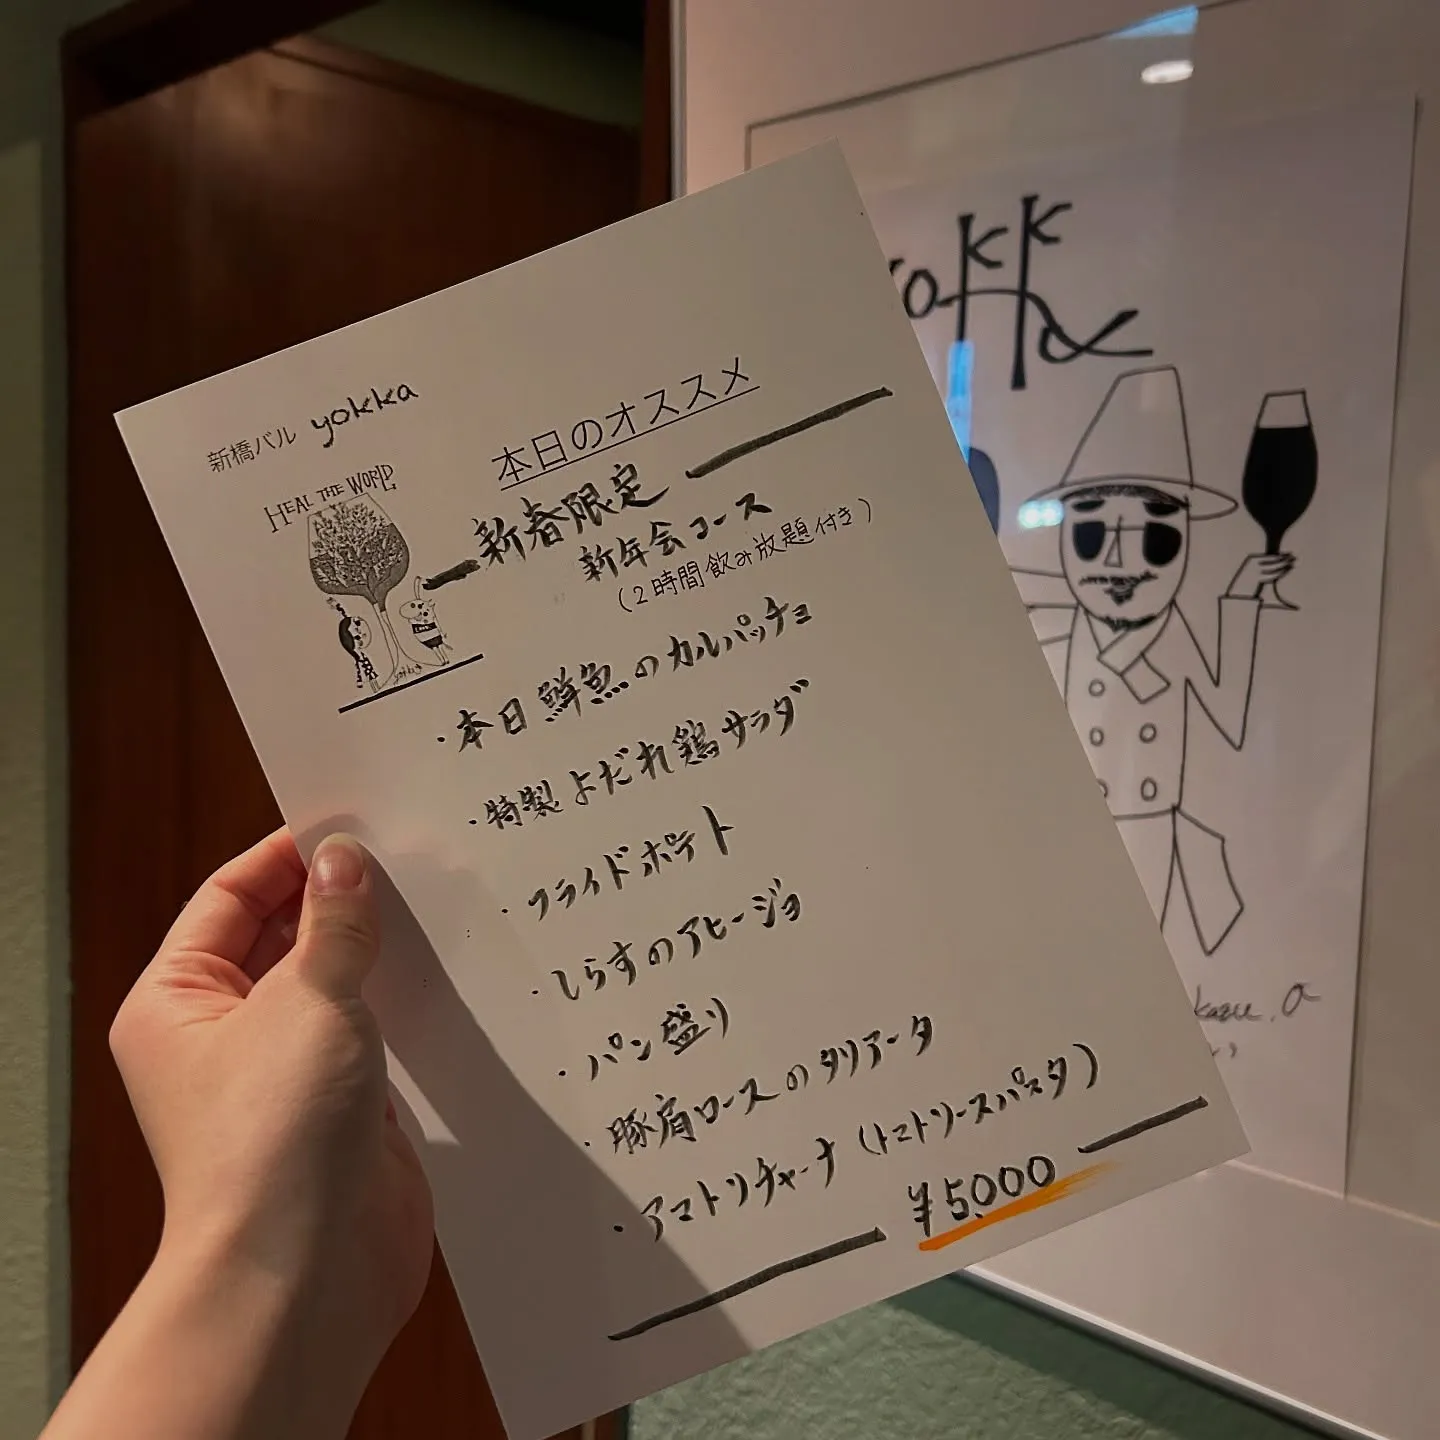 新橋バル yokka
HEAL THE WORLD
本日のオススメ
新春限定
新年会コース
(2時間飲み放題付き)
・本日鮮魚のカルパッチョ
・特製よだれ鶏サラダ
・フライドポテト
・しらすのアヒージョ
・パン盛り
・豚肩ロースのタリアータ
・アマトリチャーナ(トマトソースパスタ)
¥5,000
yokka
kazu.a